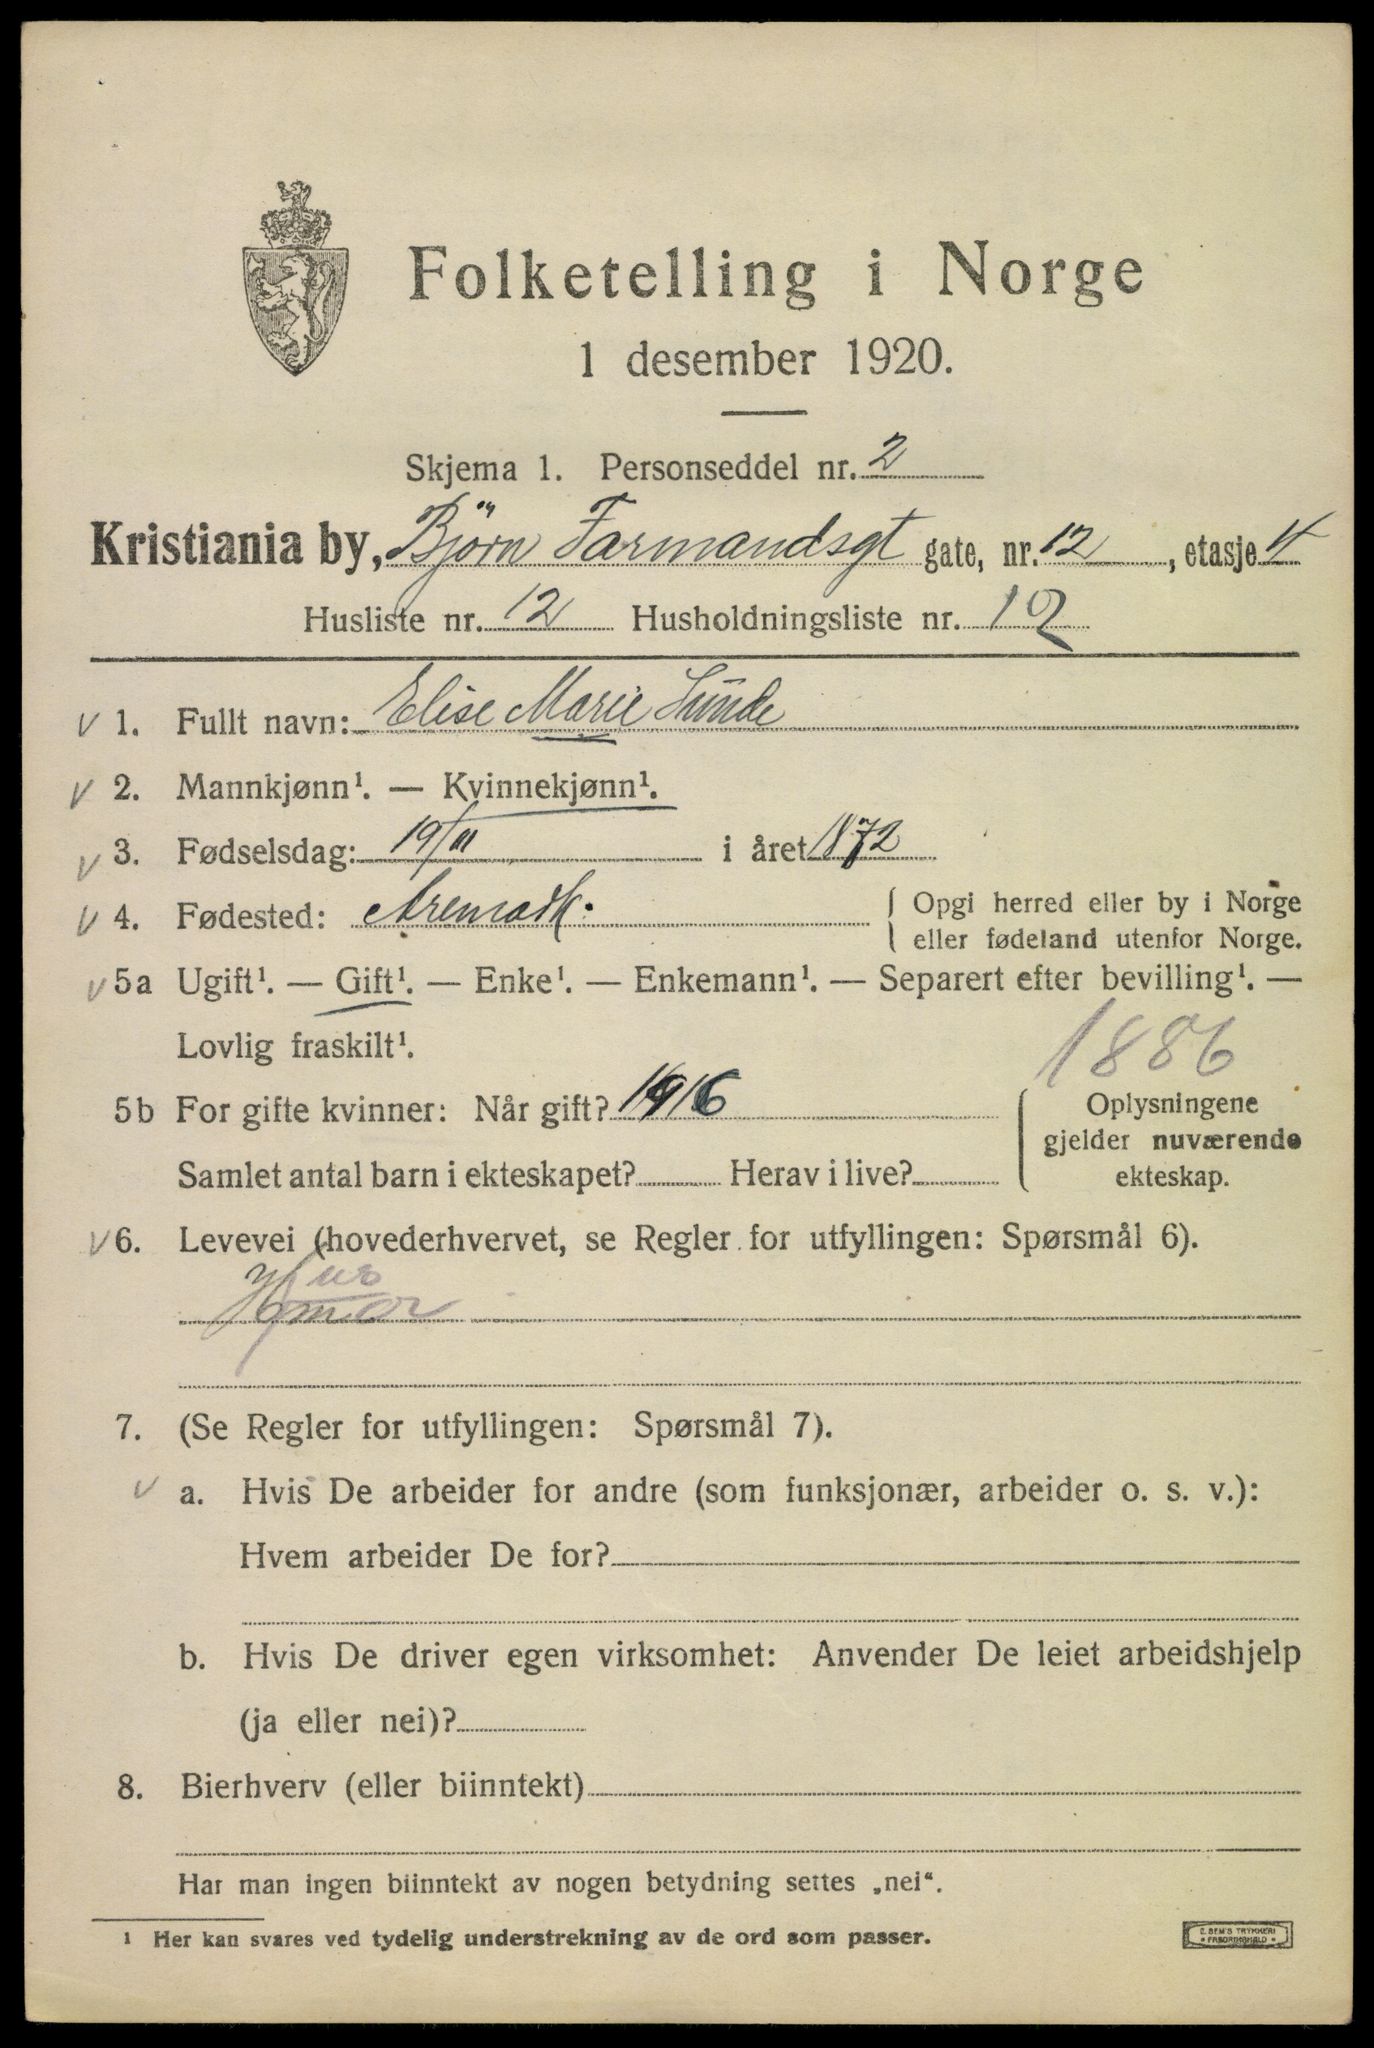 Folketelling i Norge
1 desember 1920.
Skjema 1. Personseddel nr. 2
Kristiania by, Bjørn Farmandsgt gate, nr. 12, etasje 4
Husliste nr. 12 Husholdningsliste nr. 12
v 1. Fullt navn: Elise Marie Sunde
v 2. Mannkjønn¹. — Kvinnekjønn¹.
v 3. Fødselsdag: 19/11 i året 1872
v 4. Fødested: Aremark. { Opgi herred eller by i Norge
eller fødeland utenfor Norge.
v 5a Ugift¹. — Gift¹. — Enke¹. — Enkemann¹. — Separert efter bevilling¹. —
Lovlig fraskilt¹.
1886
5b For gifte kvinner: Når gift? 1916
Samlet antal barn i ekteskapet? Herav i live?
{ Oplysningene
gjelder nuværende
ekteskap.
v 6. Levevei (hovederhvervet, se Regler for utfyllingen: Spørsmål 6).
Hus
mor
7. (Se Regler for utfyllingen: Spørsmål 7).
v a. Hvis De arbeider for andre (som funksjonær, arbeider o. s. v.):
Hvem arbeider De for?
b. Hvis De driver egen virksomhet: Anvender De leiet arbeidshjelp
(ja eller nei)?
8. Bierhverv (eller biinntekt)
Har man ingen biinntekt av nogen betydning settes „nei“.
¹ Her kan svares ved tydelig understrekning av de ord som passer.
C. SEM'S TRYKKERI
• FREDRIKSHALD •